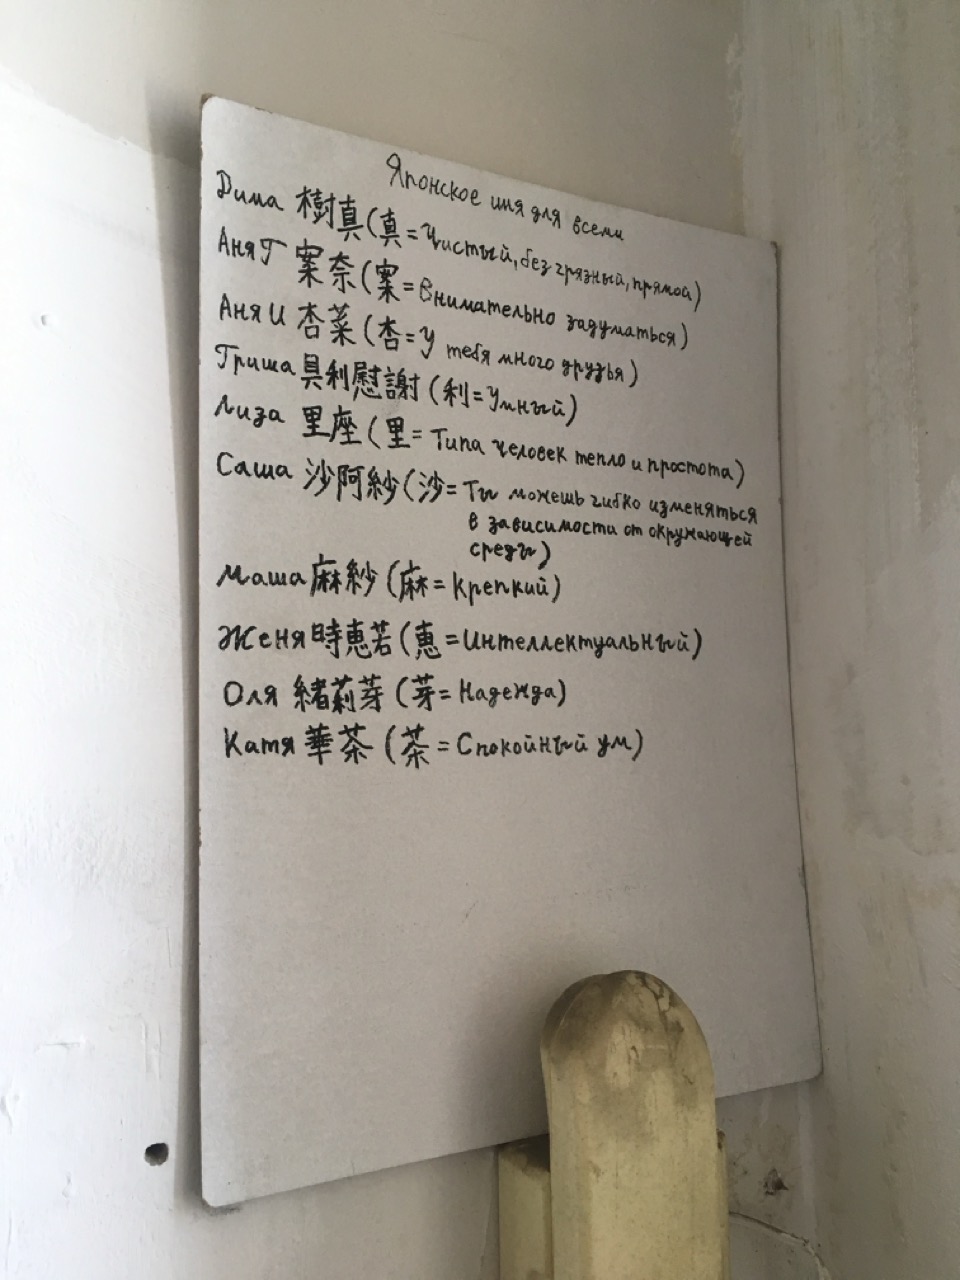 Японское имя для всеми
Дима 樹真(真=Чистый, без грязный, прямой)
Аня Г 案奈(案=Внимательно задуматься)
Аня И 杏菜(杏=У тебя много друзья)
Гриша 具利慰謝(利=Умный)
Лиза 里座(里=Типа человек тепло и простота)
Саша 沙阿紗(沙=Ты можешь гибко изменяться
в зависимости от окружающей
среды)
Маша 麻紗(麻=Крепкий)
Женя 時恵若(恵=Интеллектуальный)
Оля 緒莉芽(芽=Надежда)
Катя 華茶(茶=Спокойный ум)